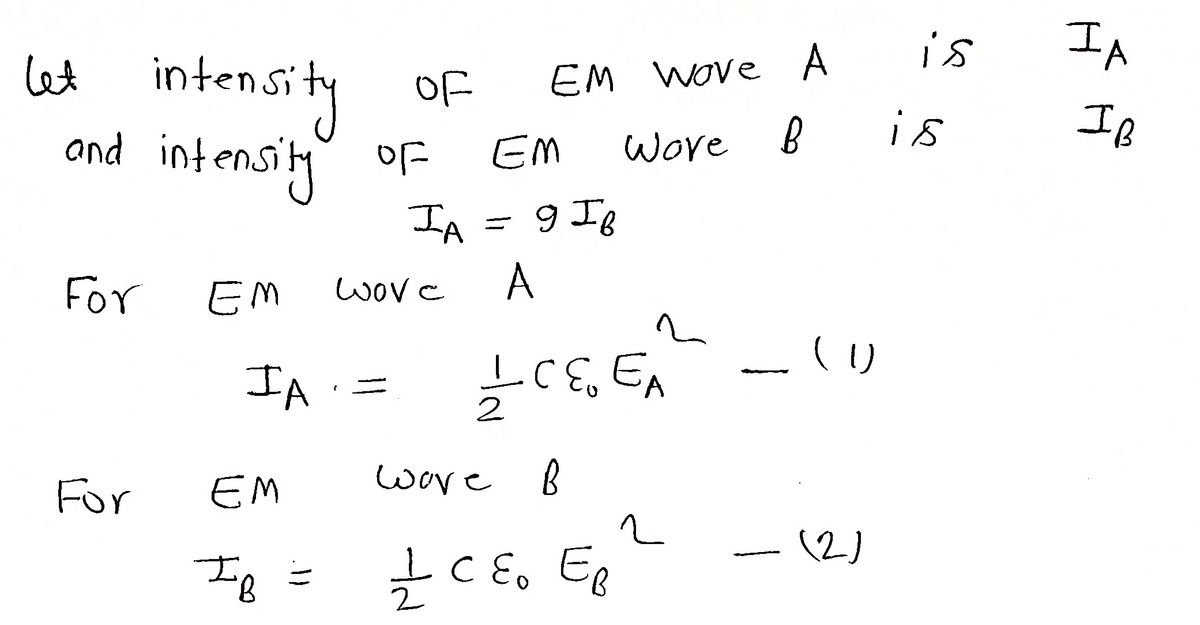 let intensity OF EM wave A is I_A
and intensity OF EM wave B is I_B
I_A = 9 I_B
For EM wave A
I_A = 1/2 C ε₀ E_A² — (1)
For EM wave B
I_B = 1/2 C ε₀ E_B² — (2)